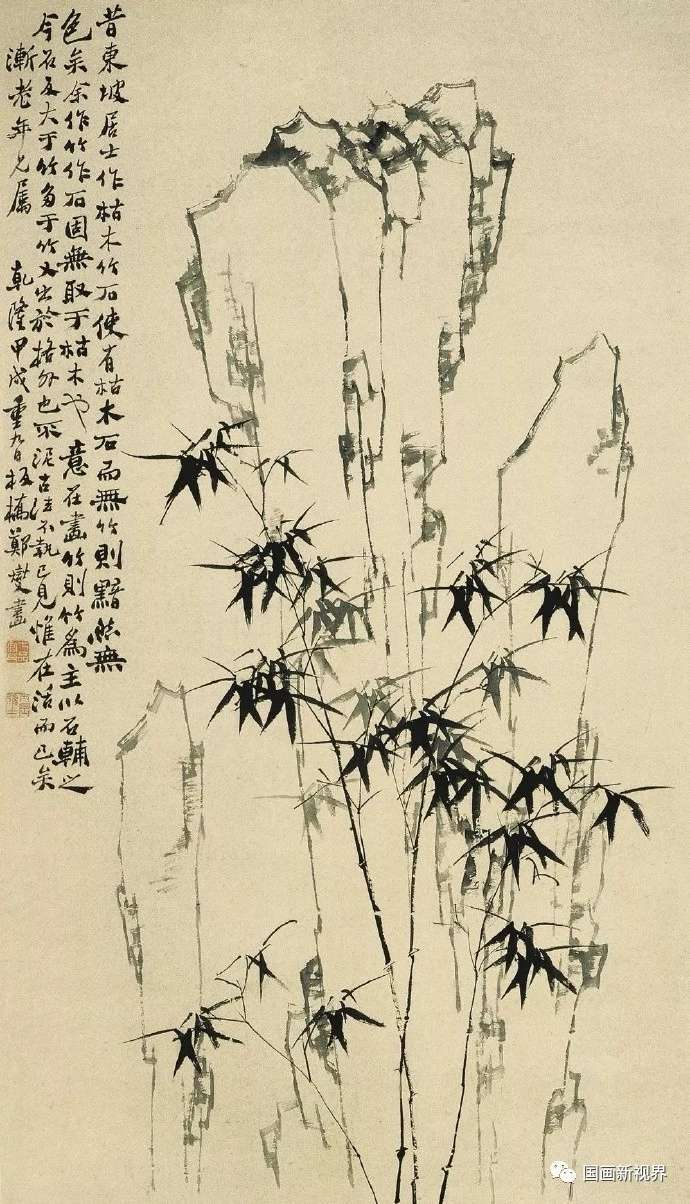 昔東坡居士作枯木竹石使有枯木石而無竹則黯然無
色矣余作竹作石固無取于枯木也意在畫竹則竹為主以石輔之
今石反大于竹多于竹又出於格外也不泥古法不執己見惟在活而已矣
漸老年兄屬 乾隆甲戌重九日板橋鄭燮畫
国画新视界